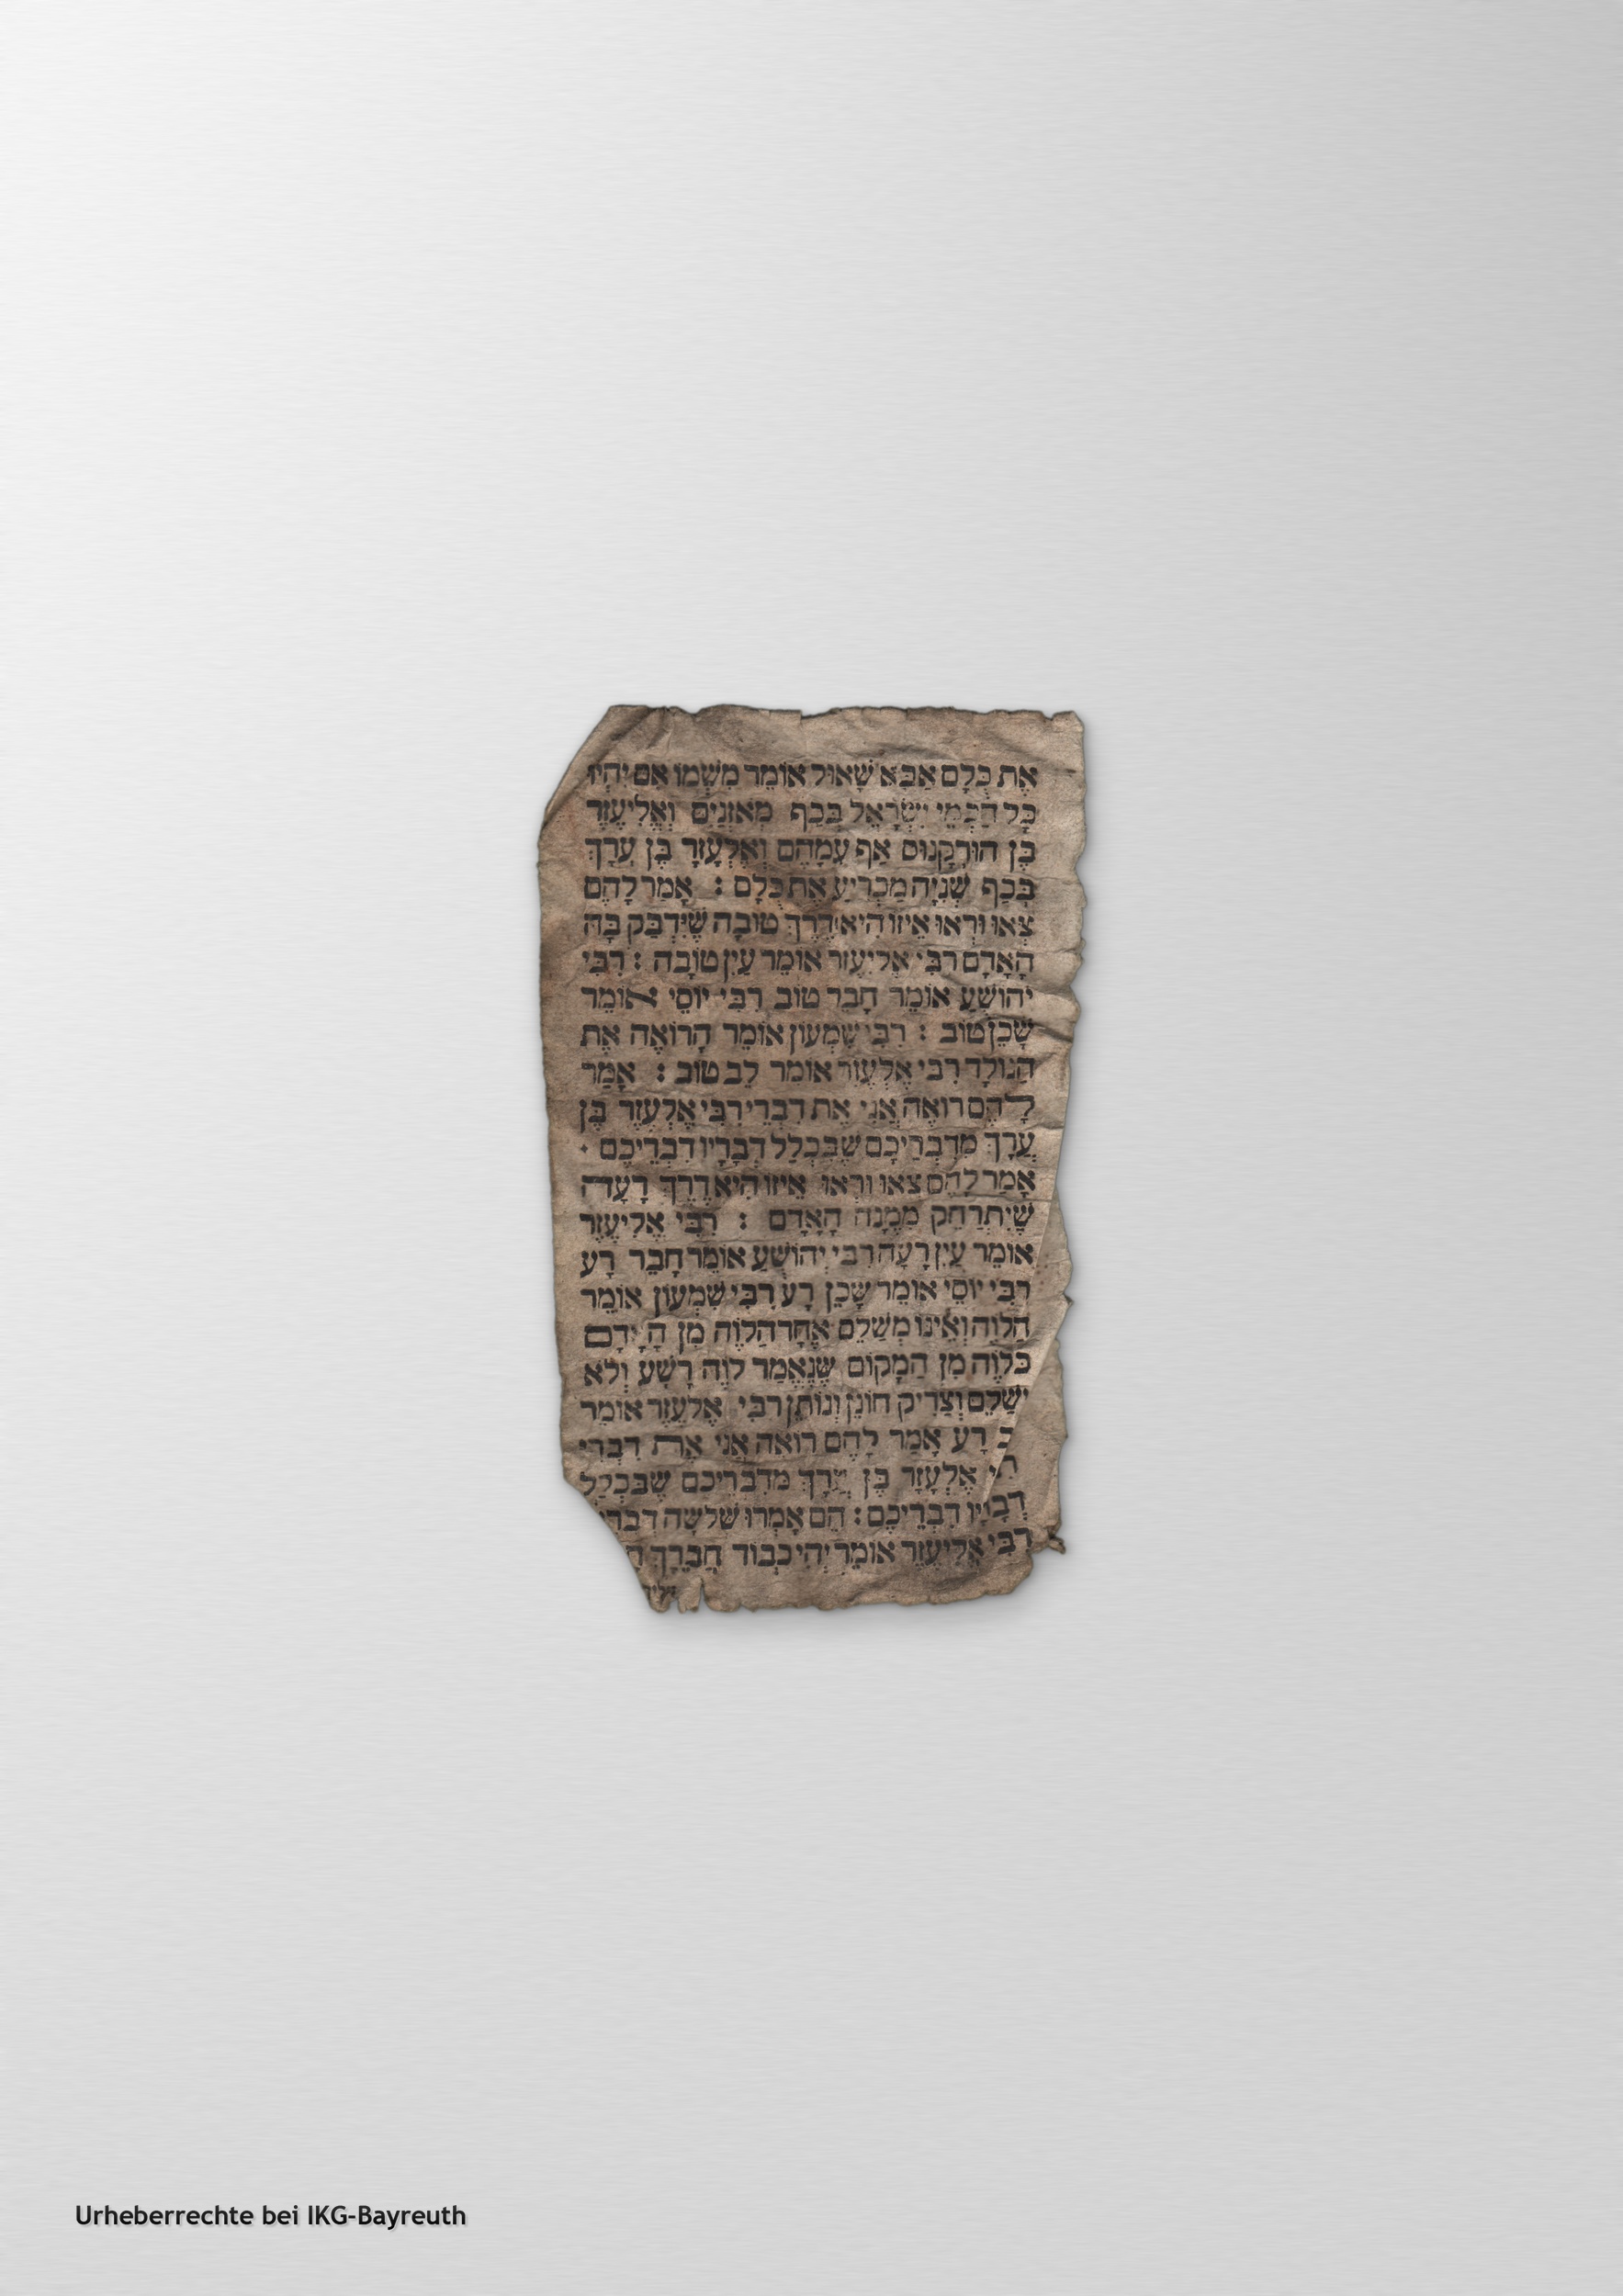 אֶת כֻּלָם אַבָּא שָׁאוּל אוֹמֵר מִשְׁמוֹ אִם יִהְיוּ
כָּל חַכְמֵי יִשְׂרָאֵל בְּכַף מֹאזְנַיִם וֶאֱלִיעֶזֶר
בֶּן הוּרְקָנוּס אַף עִמָהֶם וְאֶלְעָזָר בֶּן עֲרָךְ
בְּכַף שְׁנִיָה מַכְרִיעַ אֶת כֻּלָם : אָמַר לָהֶם
צְאוּ וּרְאוּ אֵיזוֹ הִיא דֶרֶךְ טוֹבָה שֶׁיִדְבַּק בָּהּ
הָאָדָם רַבִּי אֱלִיעֶזֶר אוֹמֵר עַיִן טוֹבָה : רַבִּי
יְהוֹשֻׁעַ אוֹמֵר חָבֵר טוֹב רַבִּי יוֹסֵי אוֹמֵר
שָׁכֵן טוֹב : רַבִּי שִׁמְעוֹן אוֹמֵר הָרוֹאֶה אֶת
הַנוֹלָד רַבִּי אֶלְעָזָר אוֹמֵר לֵב טוֹב : אָמַר
לָהֶם רוֹאֶה אֲנִי אֶת דִבְרֵי רַבִּי אֶלְעָזָר בֶּן
עֲרָךְ מִדִבְרֵיכֶם שֶׁבִּכְלַל דְבָרָיו דִבְרֵיכֶם ·
אָמַר לָהֶם צְאוּ וּרְאוּ אֵיזוֹ הִיא דֶרֶךְ רָעָה
שֶׁיִתְרַחֵק מִמֶנָה הָאָדָם : רַבִּי אֱלִיעֶזֶר
אוֹמֵר עַיִן רָעָה רַבִּי יְהוֹשֻׁעַ אוֹמֵר חָבֵר רָע
רַבִּי יוֹסֵי אוֹמֵר שָׁכֵן רָע רַבִּי שִׁמְעוֹן אוֹמֵר
הַלוֹוֶה וְאֵינוֹ מְשַׁלֵם אֶחָד הַלוֹוֶה מִן
כְּלוֹוֶה מִן הַמָקוֹם שֶׁנֶאֱמַר לוֹוֶה רָשָׁע וְלֹא
יְשַׁלֵם וְצַדִיק חוֹנֵן וְנוֹתֵן רַבִּי אֶלְעָזָר אוֹמֵר
רָע אָמַר לָהֶם רוֹאֶה אֲנִי אֶת דִבְרֵי
אֶלְעָזָר בֶּן עֲרָךְ מִדִבְרֵיכֶם שֶׁבִּכְלַל
דְבָרָיו דִבְרֵיכֶם : הֵם אָמְרוּ שְׁלֹשָׁה
רַבִּי אֱלִיעֶזֶר אוֹמֵר יְהִי כְבוֹד חֲבֵרָךְ
Urheberrechte bei IKG-Bayreuth